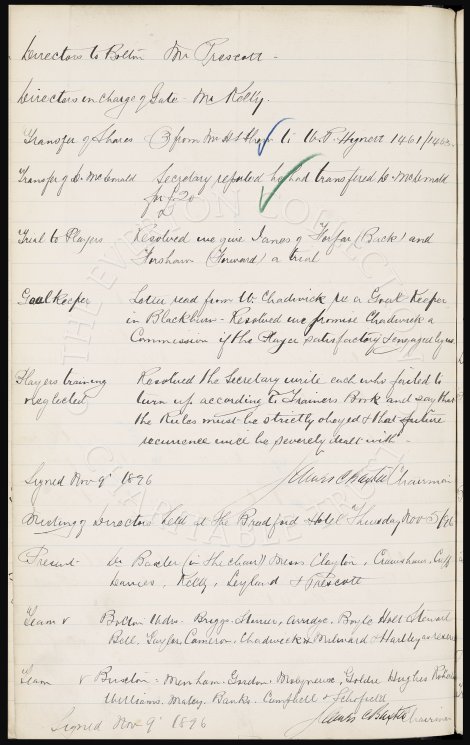 Directors to Bolton Mr Prescott.
Directors in charge of Gate - Mr Kelly.
Transfer of Shares (3) from Mr to W.R. 1461/1463
Transfer of D. McDonald Secretary reported he had transfered D. McDonald
for £20
Trial to Players Resolved we give Innes of Forfar (Back) and
Forsham (Forward) a trial
Goal Keeper Letter read from W. Chadwick re a Goal Keeper
in Blackburn - Resolved we promise Chadwick a
Commission if the Player satisfactory & engaged by us
Players training Resolved the Secretary write each who failed to
neglected turn up according to Trainers Book and say that
the Rules must be strictly obeyed & that future
recurrence will be severely dealt with -
Signed Nov 9th 1896 James Baxter Chairman
Meeting of Directors held at the Bradford Hotel Thursday Nov 5/96
Present Dr Baxter (in the chair) Messrs Clayton, Crawshaw, Cuff
Davies, Kelly, Leyland & Prescott
Team v Bolton Wdrs. Briggs, Storrier, Arridge, Boyle Holt Stewart
Bell. Taylor, Cameron, Chadwick & Milward & Hartley as reserve
Team v Buxton - Menham. Gordon. Molyneux, Goldie Hughes
Williams. Maley. Banks. Campbell & Schofield
Signed Nov 9th 1896 James Baxter Chairman
THE EVERTON COLLECTION
CHARITABLE TRUST